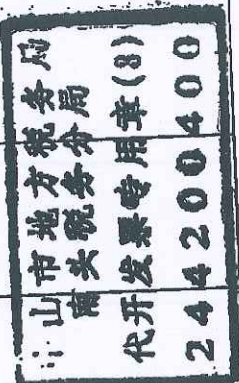 山市地方税务局
南头税务分局
代开发票专用章(8)
244200400